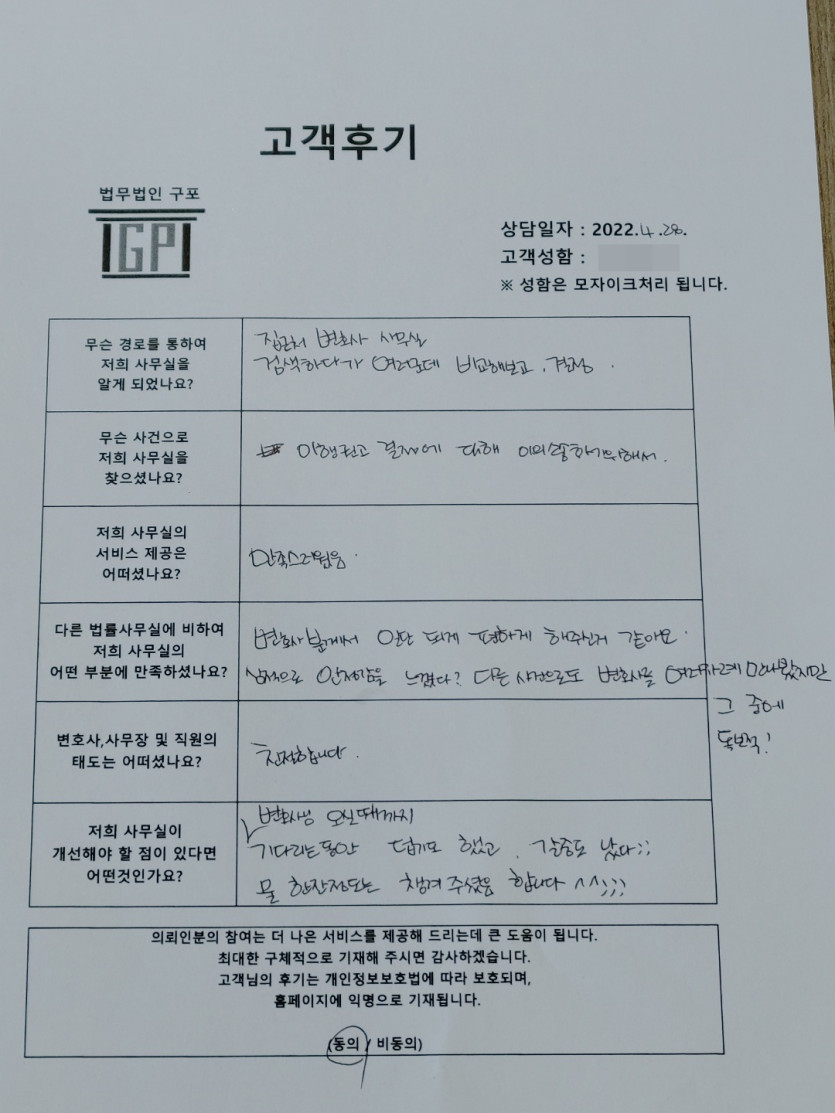 고객후기
법무법인 구포
IGPI
상담일자 : 2022.4.28.
고객성함 :
※ 성함은 모자이크처리 됩니다.
무슨 경로를 통하여
저희 사무실을
알게 되었나요?
집근처 변호사 사무실
검색하다가 여러군데 비교해보고, 결정.
무슨 사건으로
저희 사무실을
찾으셨나요?
이행권고 결정에 대해 이의송하기위해서.
저희 사무실의
서비스 제공은
어떠셨나요?
만족스러웠음.
다른 법률사무실에 비하여
저희 사무실의
어떤 부분에 만족하셨나요?
변호사분께서 일단 되게 편하게 해주신거 같아요.
심적으로 안정감을 느꼈다? 다른 사건으로도 변호사를 여러차례 만나봤지만
그 중에
독보적!
변호사,사무장 및 직원의
태도는 어떠셨나요?
친절합니다.
저희 사무실이
개선해야 할 점이 있다면
어떤것인가요?
변호사님 오실때까지
기다리는동안 덥기도 했고, 갈증도 났다;;
물 한잔정도는 챙겨 주셨음 합니다 ^^;;;
의뢰인분의 참여는 더 나은 서비스를 제공해 드리는데 큰 도움이 됩니다.
최대한 구체적으로 기재해 주시면 감사하겠습니다.
고객님의 후기는 개인정보보호법에 따라 보호되며,
홈페이지에 익명으로 기재됩니다.
(동의 / 비동의)